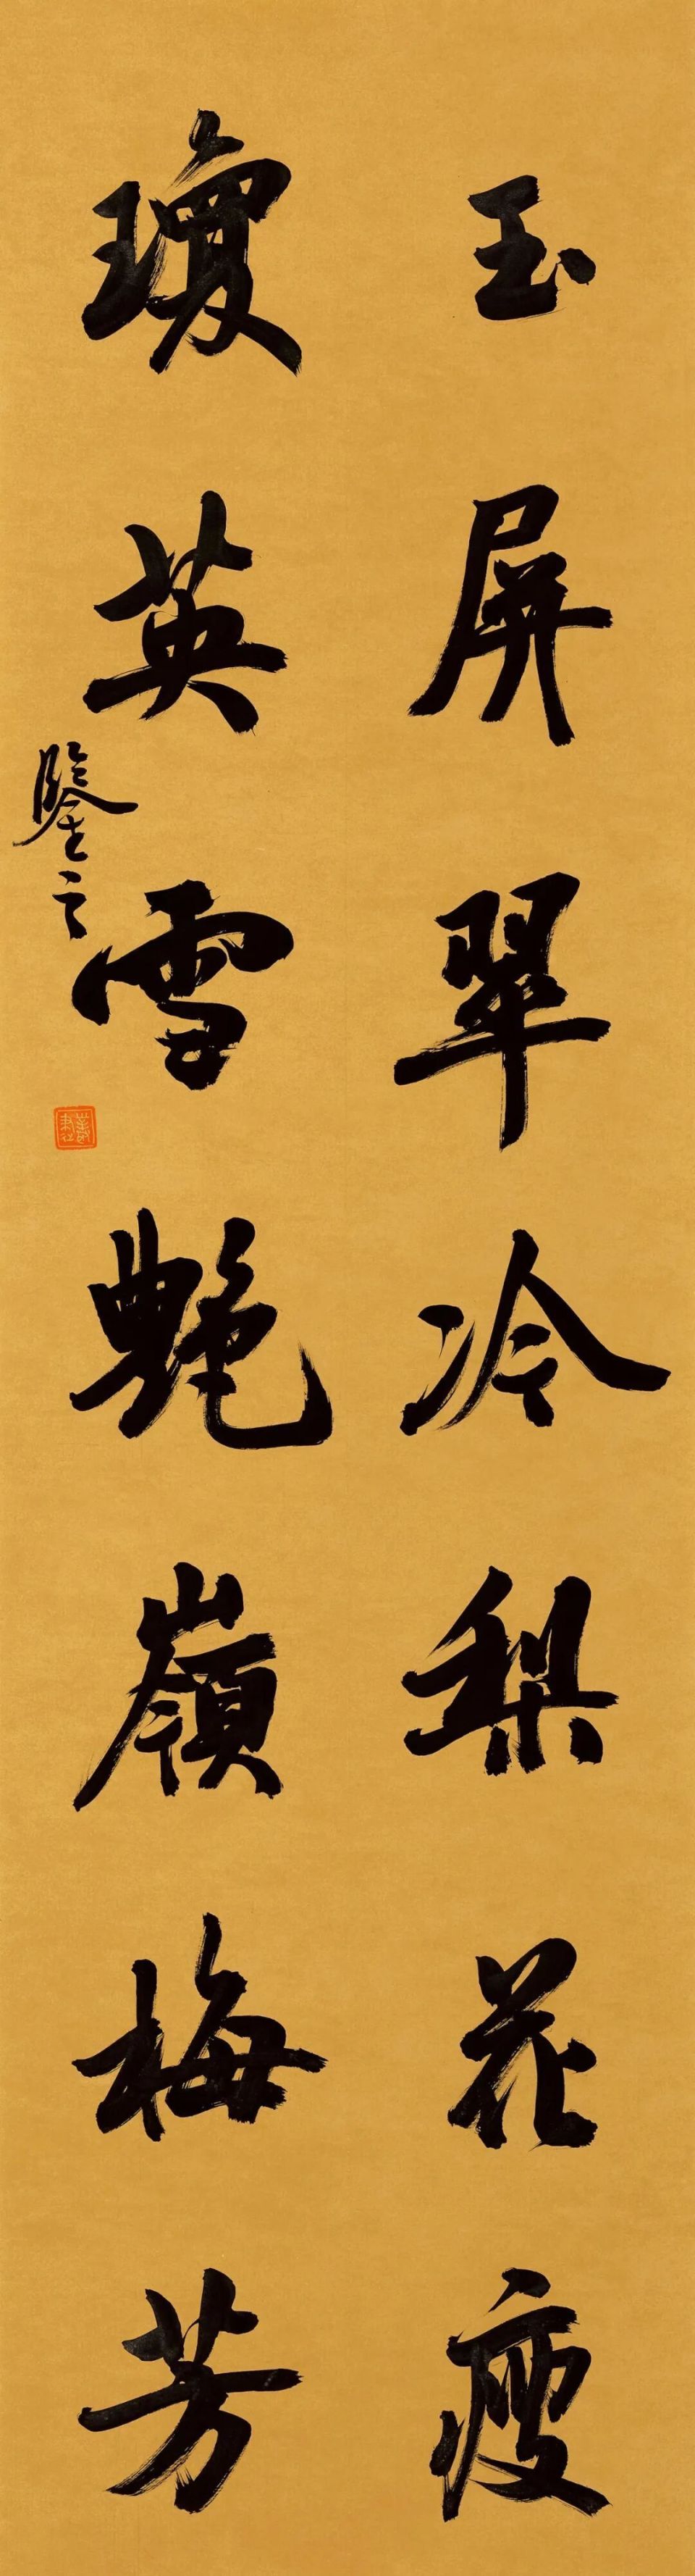 玉屏翠冷梨花瘦
瓊英雪艷嶺梅芳
鑒之